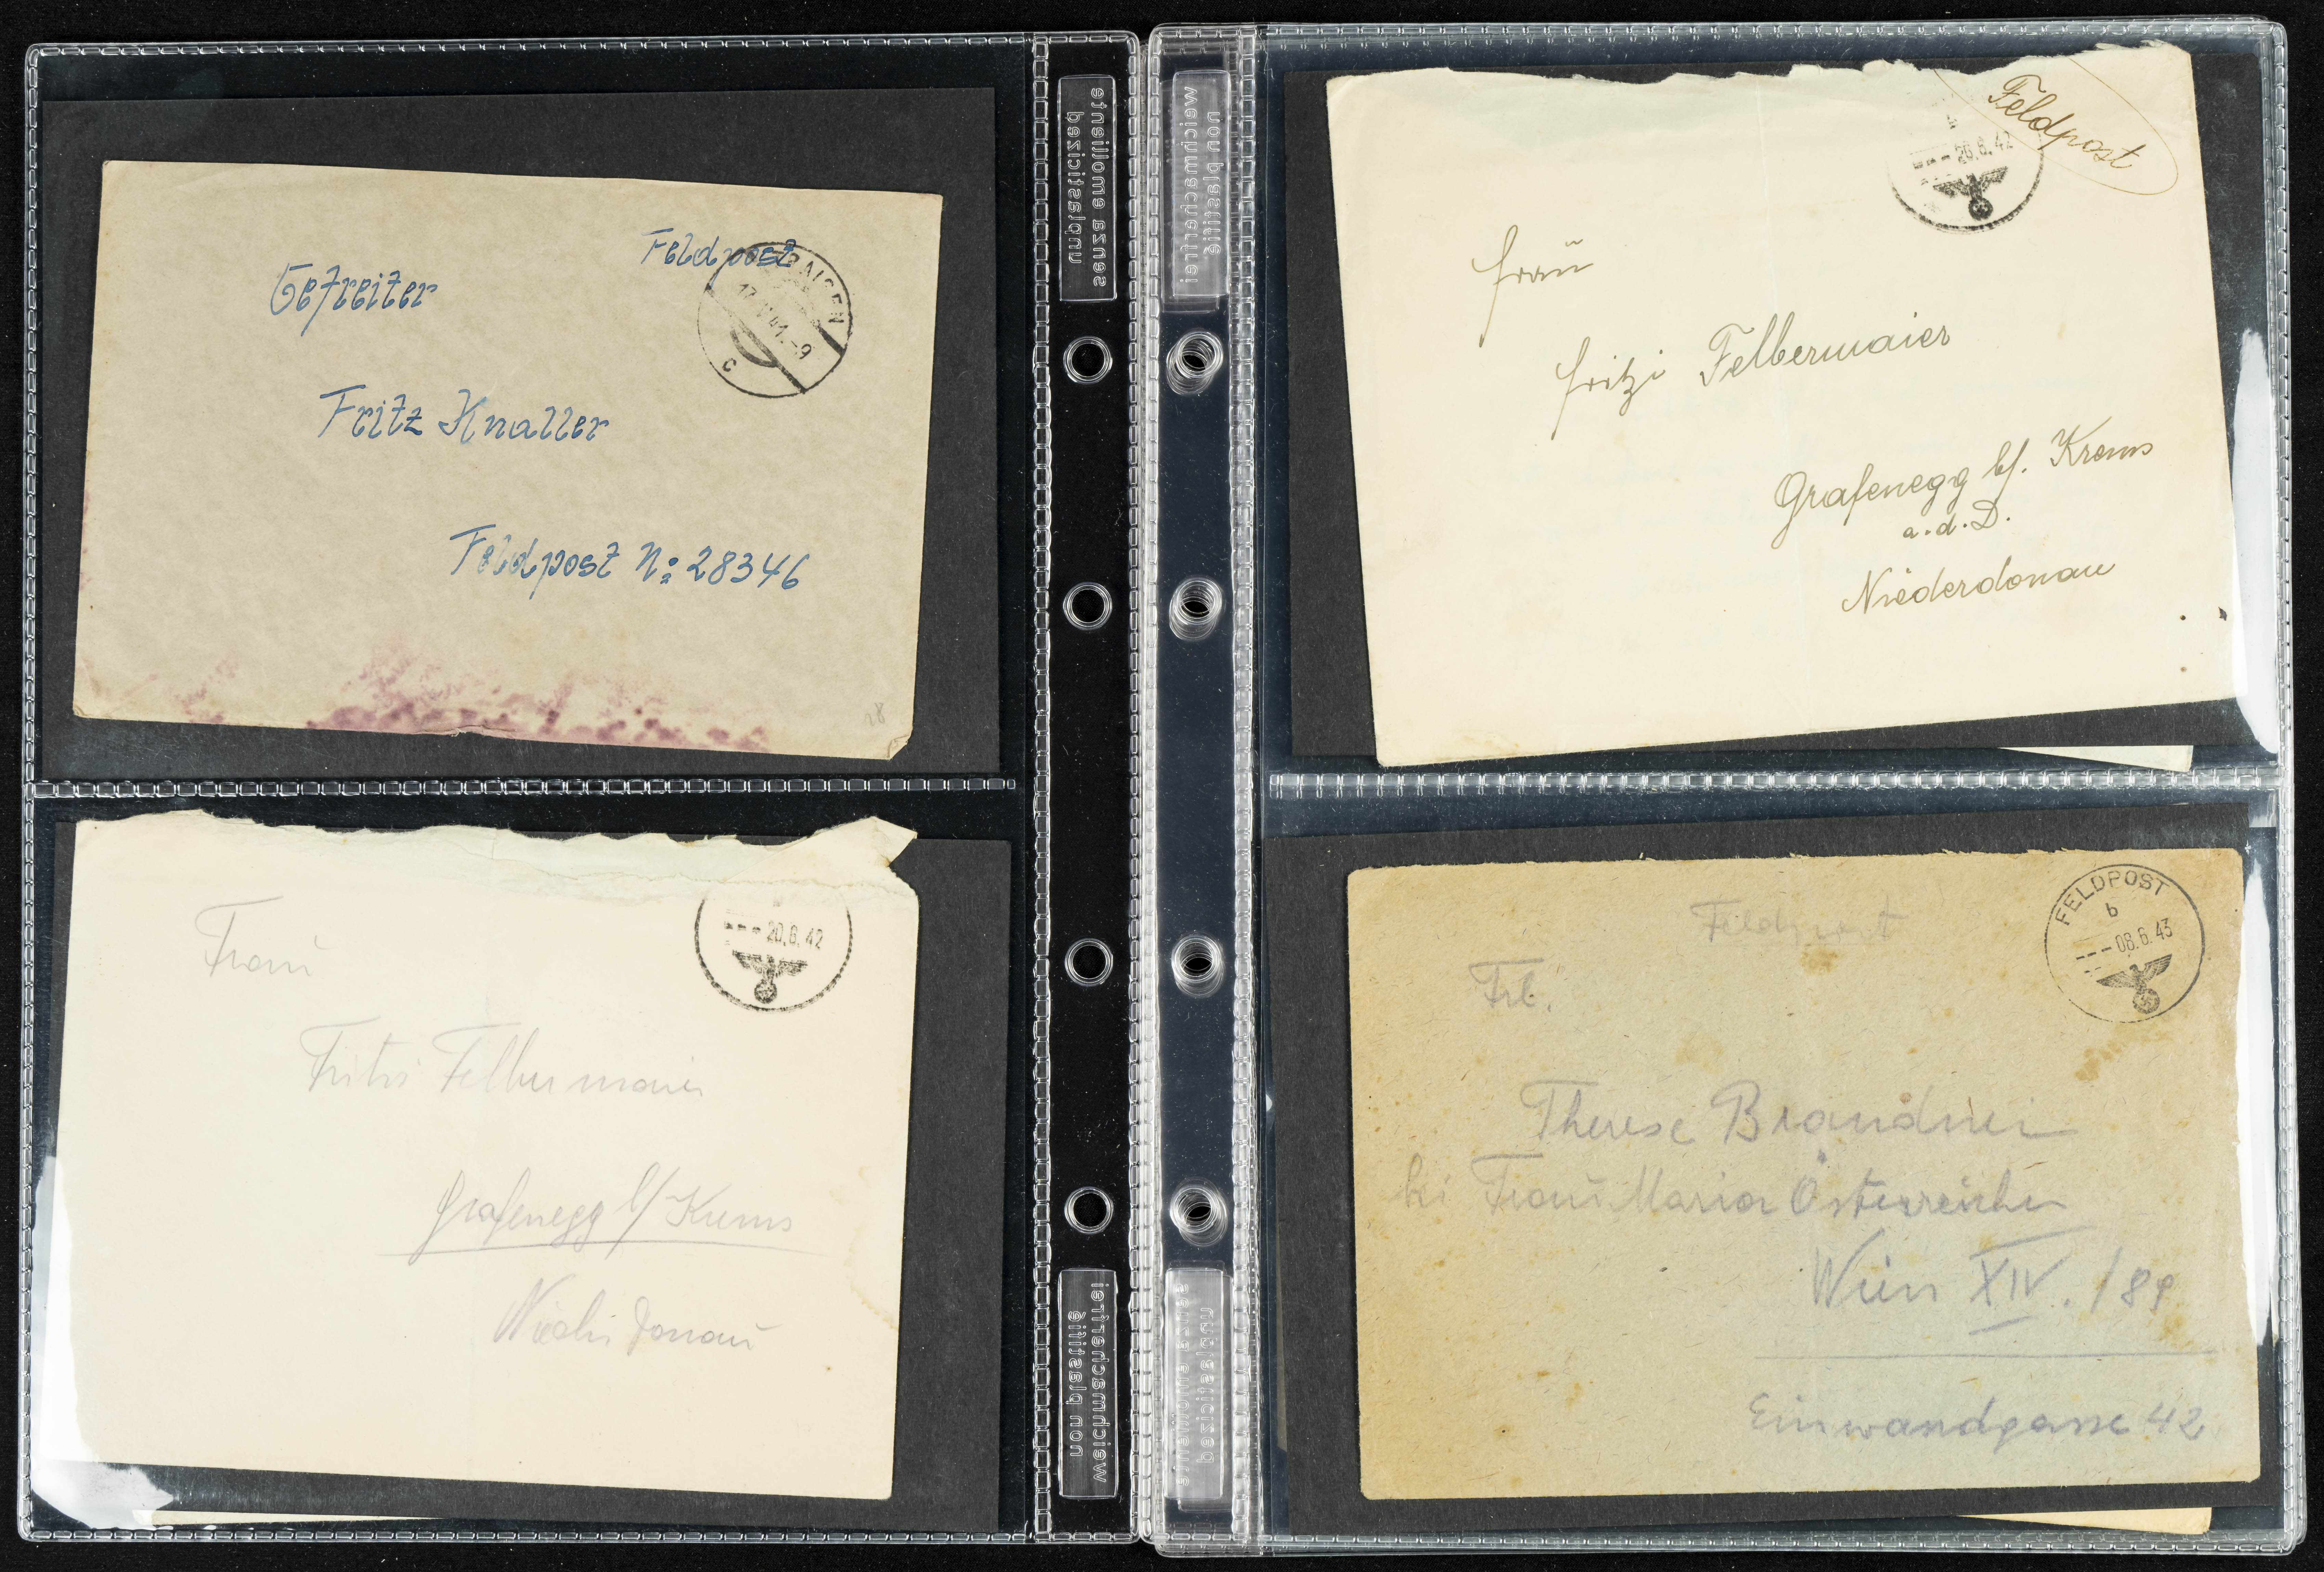 Feldpost
Gefreiter
17. V. 41.-9
c
Fritz Knaller
Feldpost No 28346
Frau
20.6.42
Fritzi Felbermaier
Grafenegg b/Krems
Niederdonau
Feldpost
20.6.42
Frau
Fritzi Felbermaier
Grafenegg b/. Krems
a.d.D.
Niederdonau
Feldpost
FELDPOST
b
06.6.43
Frl.
Therese Brandner
bei Frau Maria Österreicher
Wien XIV./89
Einwandgasse 42
unplasticized
senza emolliente
non plastifié
weichmacherfrei
weichmacherfrei
non plastifié
senza emolliente
unplasticized